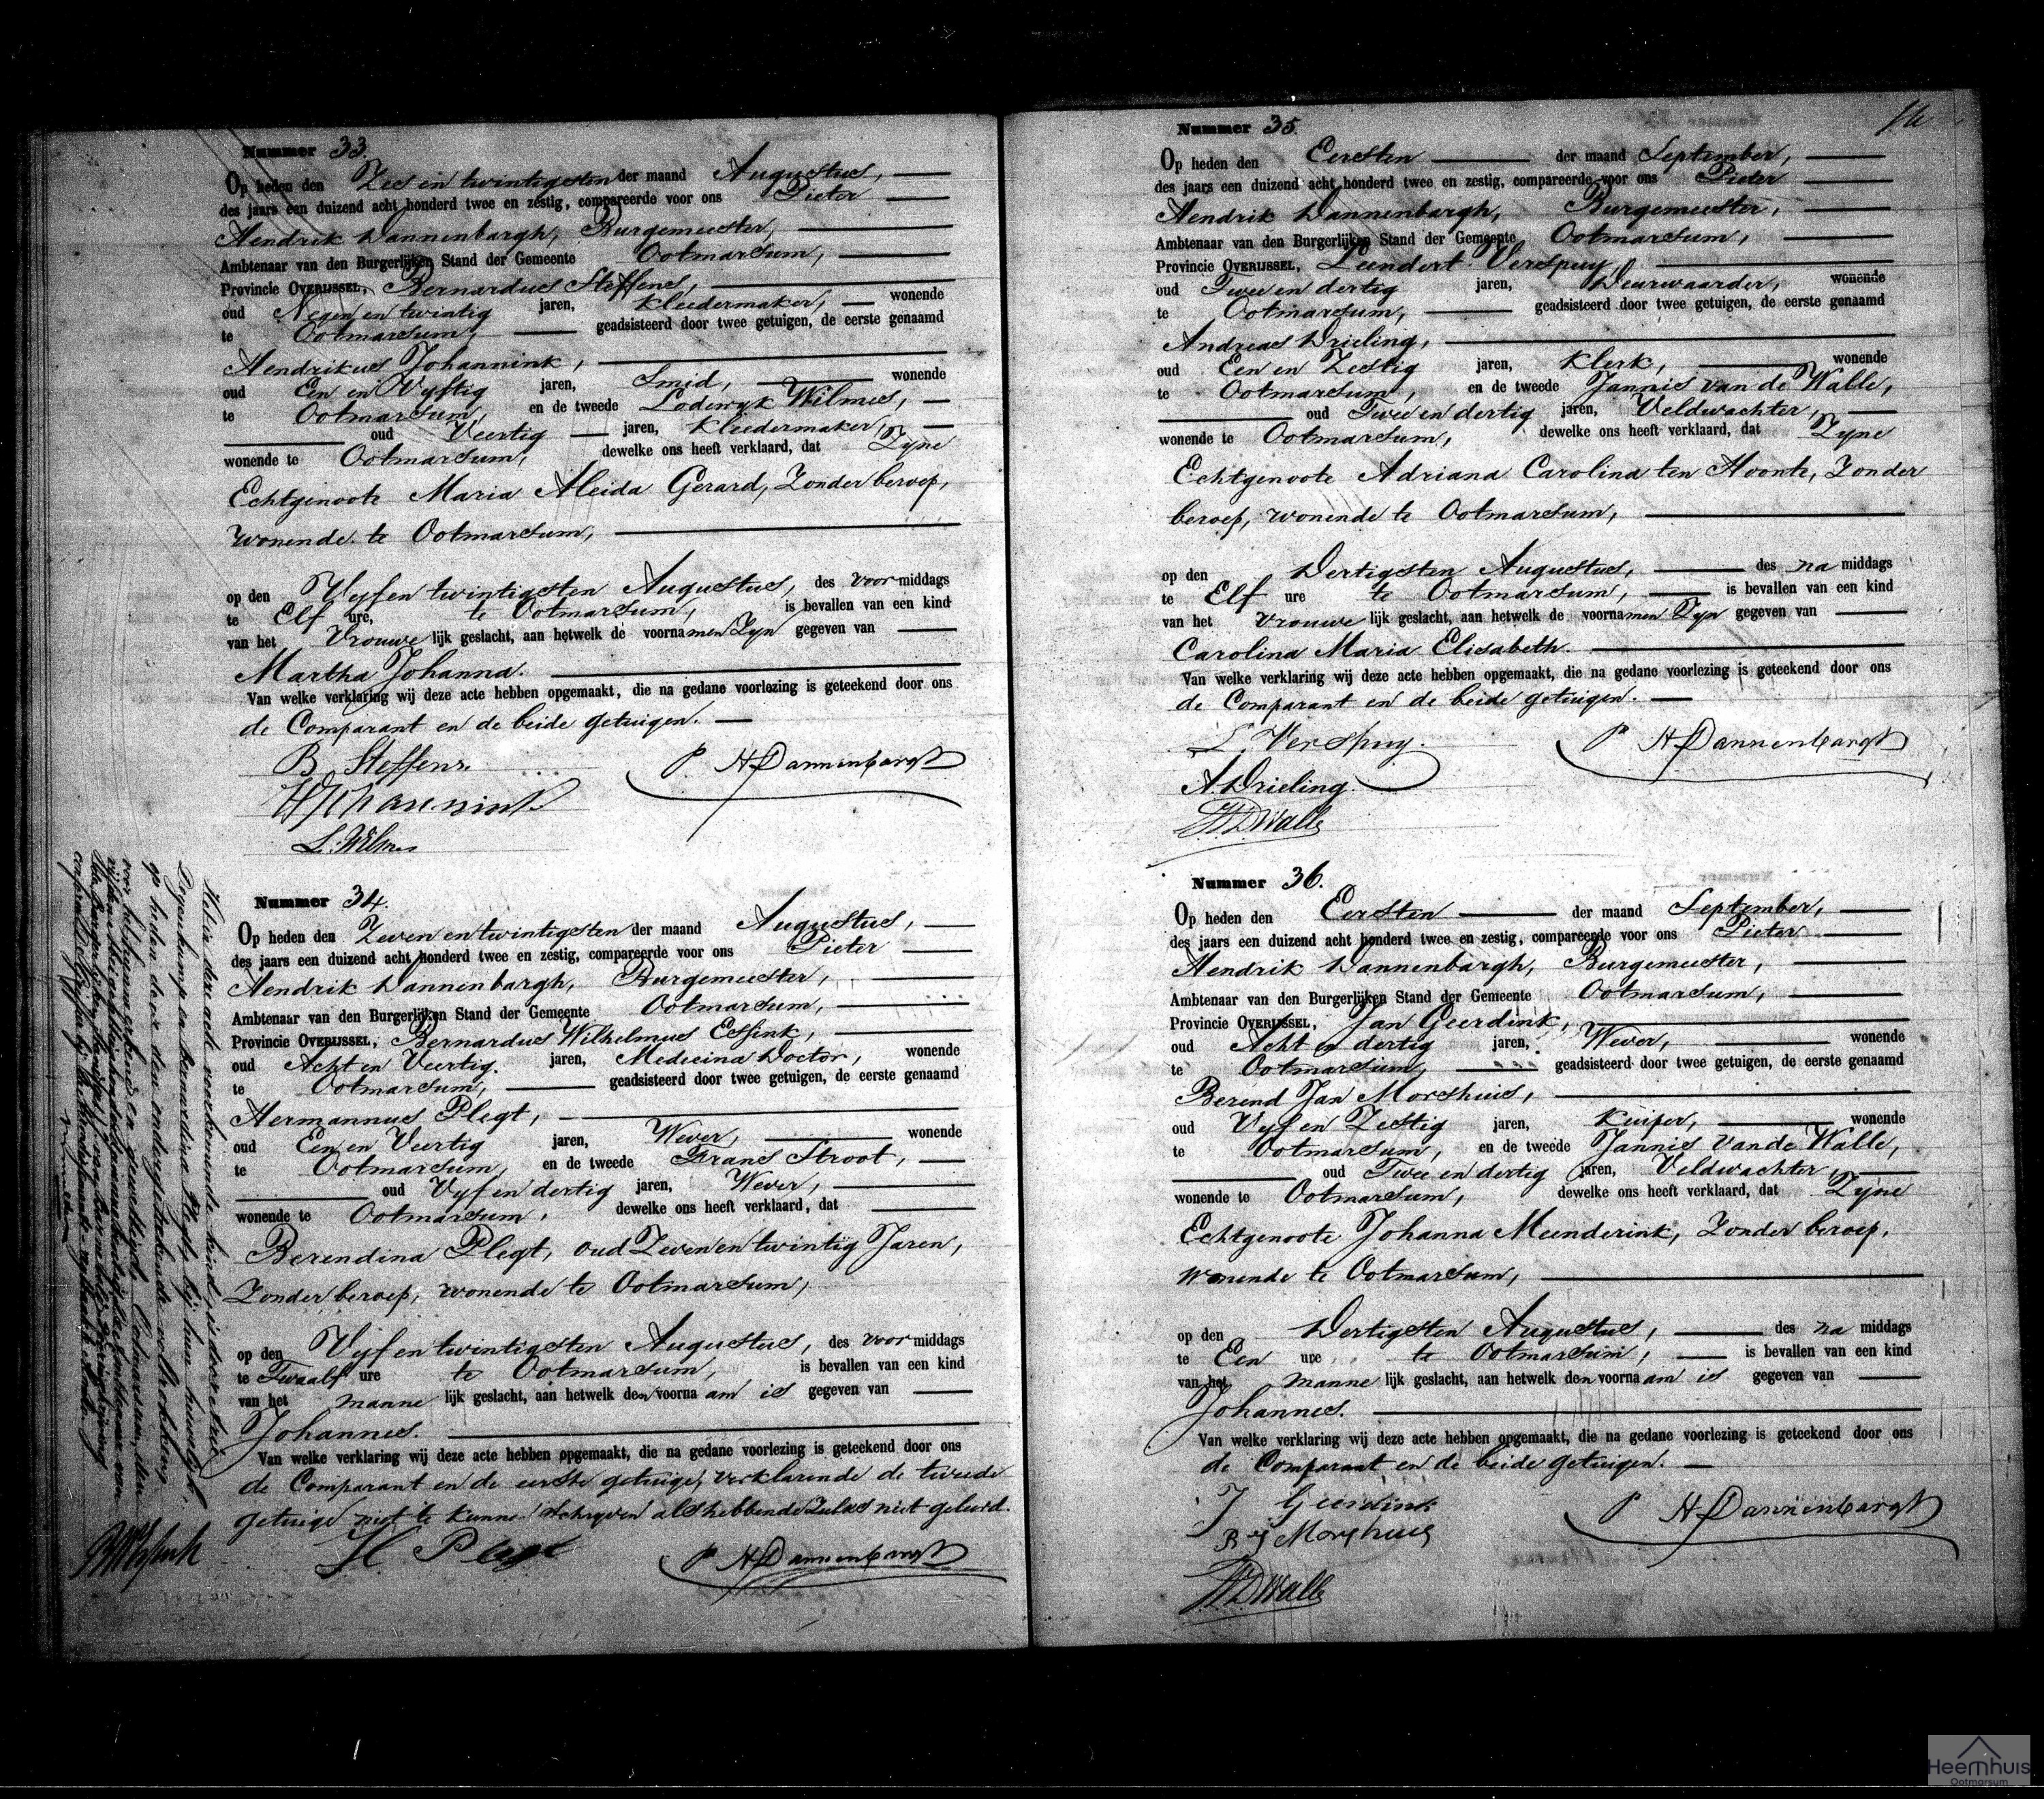 Nummer 33.
Op heden den Zes en twintigsten der maand Augustus,
des jaars een duizend acht honderd twee en zestig, compareerde voor ons Pieter
Hendrik Dannenbargh, Burgemeester,
Ambtenaar van den Burgerlijken Stand der Gemeente Ootmarsum,
Provincie OVERIJSSEL, Bernardus Steffens,
oud Negen en twintig jaren, Kleedermaker, wonende
te Ootmarsum, geadsisteerd door twee getuigen, de eerste genaamd
Hendrikus Johannink,
oud Een en Vyftig jaren, Smid, wonende
te Ootmarsum, en de tweede Lodewyk Wilmes,
oud Veertig jaren, Kleedermaker,
wonende te Ootmarsum, dewelke ons heeft verklaard, dat Zyne
Echtgenoote Maria Aleida Gerard, Zonder beroep,
wonende te Ootmarsum,
op den Vyf en twintigsten Augustus, des voor middags
te Elf ure, te Ootmarsum, is bevallen van een kind
van het Vrouwe lijk geslacht, aan hetwelk de voornamen Zyn gegeven van
Martha Johanna.
Van welke verklaring wij deze acte hebben opgemaakt, die na gedane voorlezing is geteekend door ons
de Comparant en de beide getuigen.
B Steffens.
P H Dannenbargh
HJohannink
L. Wilmes
Nummer 34.
Op heden den Zeven en twintigsten der maand Augustus,
des jaars een duizend acht honderd twee en zestig, compareerde voor ons Pieter
Hendrik Dannenbargh, Burgemeester,
Ambtenaar van den Burgerlijken Stand der Gemeente Ootmarsum,
Provincie OVERIJSSEL, Bernardus Wilhelmus Essink,
oud Acht en Veertig. jaren, Medicina Doctor, wonende
te Ootmarsum, geadsisteerd door twee getuigen, de eerste genaamd
Hermannus Plegt,
oud Een en Veertig jaren, Wever, wonende
te Ootmarsum, en de tweede Frans Stroot,
oud Vyf en dertig jaren, Wever,
wonende te Ootmarsum, dewelke ons heeft verklaard, dat
Berendina Plegt, oud Zeven en twintig Jaren,
Zonder beroep, wonende te Ootmarsum,
op den Vyf en twintigsten Augustus, des voor middags
te Twaalf ure te Ootmarsum, is bevallen van een kind
van het manne lijk geslacht, aan hetwelk den voorna am is gegeven van
Johannes.
Van welke verklaring wij deze acte hebben opgemaakt, die na gedane voorlezing is geteekend door ons
de Comparant en de eerste getuige, verklarende de tweede
getuige niet te kunnen schryven als hebbende Zulks niet geleerd.
H Plegt
P H Dannenbargh
Het in deze acte voorkomende kind is door
en Bernardina Plegt bij hun huwelijk,
op heden door den ondergeteekende voltrokken,
voor het hunne erkend en gewettigd. Ootmarsum, den
16
Nummer 35.
Op heden den Eersten der maand September,
des jaars een duizend acht honderd twee en zestig, compareerde voor ons Pieter
Hendrik Dannenbargh, Burgemeester,
Ambtenaar van den Burgerlijken Stand der Gemeente Ootmarsum,
Provincie OVERIJSSEL, Leendert Verspuy,
oud Twee en dertig jaren, Deurwaarder, wonende
te Ootmarsum, geadsisteerd door twee getuigen, de eerste genaamd
Andreas Drieling,
oud Een en Zestig jaren, Klerk, wonende
te Ootmarsum, en de tweede Jannis van de Walle,
oud Twee en dertig jaren, Veldwachter,
wonende te Ootmarsum, dewelke ons heeft verklaard, dat Zyne
Echtgenoote Adriana Carolina ten Hoonte, Zonder
beroep, wonende te Ootmarsum,
op den Dertigsten Augustus, des na middags
te Elf ure te Ootmarsum, is bevallen van een kind
van het Vrouwe lijk geslacht, aan hetwelk de voornamen Zyn gegeven van
Carolina Maria Elisabeth.
Van welke verklaring wij deze acte hebben opgemaakt, die na gedane voorlezing is geteekend door ons
de Comparant en de beide getuigen.
L. Verspuy.
P H Dannenbargh
A. Drieling.
JVDWalle
Nummer 36.
Op heden den Eersten der maand September,
des jaars een duizend acht honderd twee en zestig, compareerde voor ons Pieter
Hendrik Dannenbargh, Burgemeester,
Ambtenaar van den Burgerlijken Stand der Gemeente Ootmarsum,
Provincie OVERIJSSEL, Jan Geerdink,
oud Acht en dertig jaren, Wever, wonende
te Ootmarsum, geadsisteerd door twee getuigen, de eerste genaamd
Berend Jan Morshuis,
oud Vyf en Zestig jaren, Kuiper, wonende
te Ootmarsum, en de tweede Jannis van de Walle,
oud Twee en dertig jaren, Veldwachter,
wonende te Ootmarsum, dewelke ons heeft verklaard, dat Zyne
Echtgenoote Johanna Meenderink, Zonder beroep,
wonende te Ootmarsum,
op den Dertigsten Augustus, des na middags
te Een ure te Ootmarsum, is bevallen van een kind
van het manne lijk geslacht, aan hetwelk den voorna am is gegeven van
Johannes.
Van welke verklaring wij deze acte hebben opgemaakt, die na gedane voorlezing is geteekend door ons
de Comparant en de beide getuigen.
J Geerdink
P H Dannenbargh
B J Morshuis
JVDWalle
Heemhuis
Ootmarsum